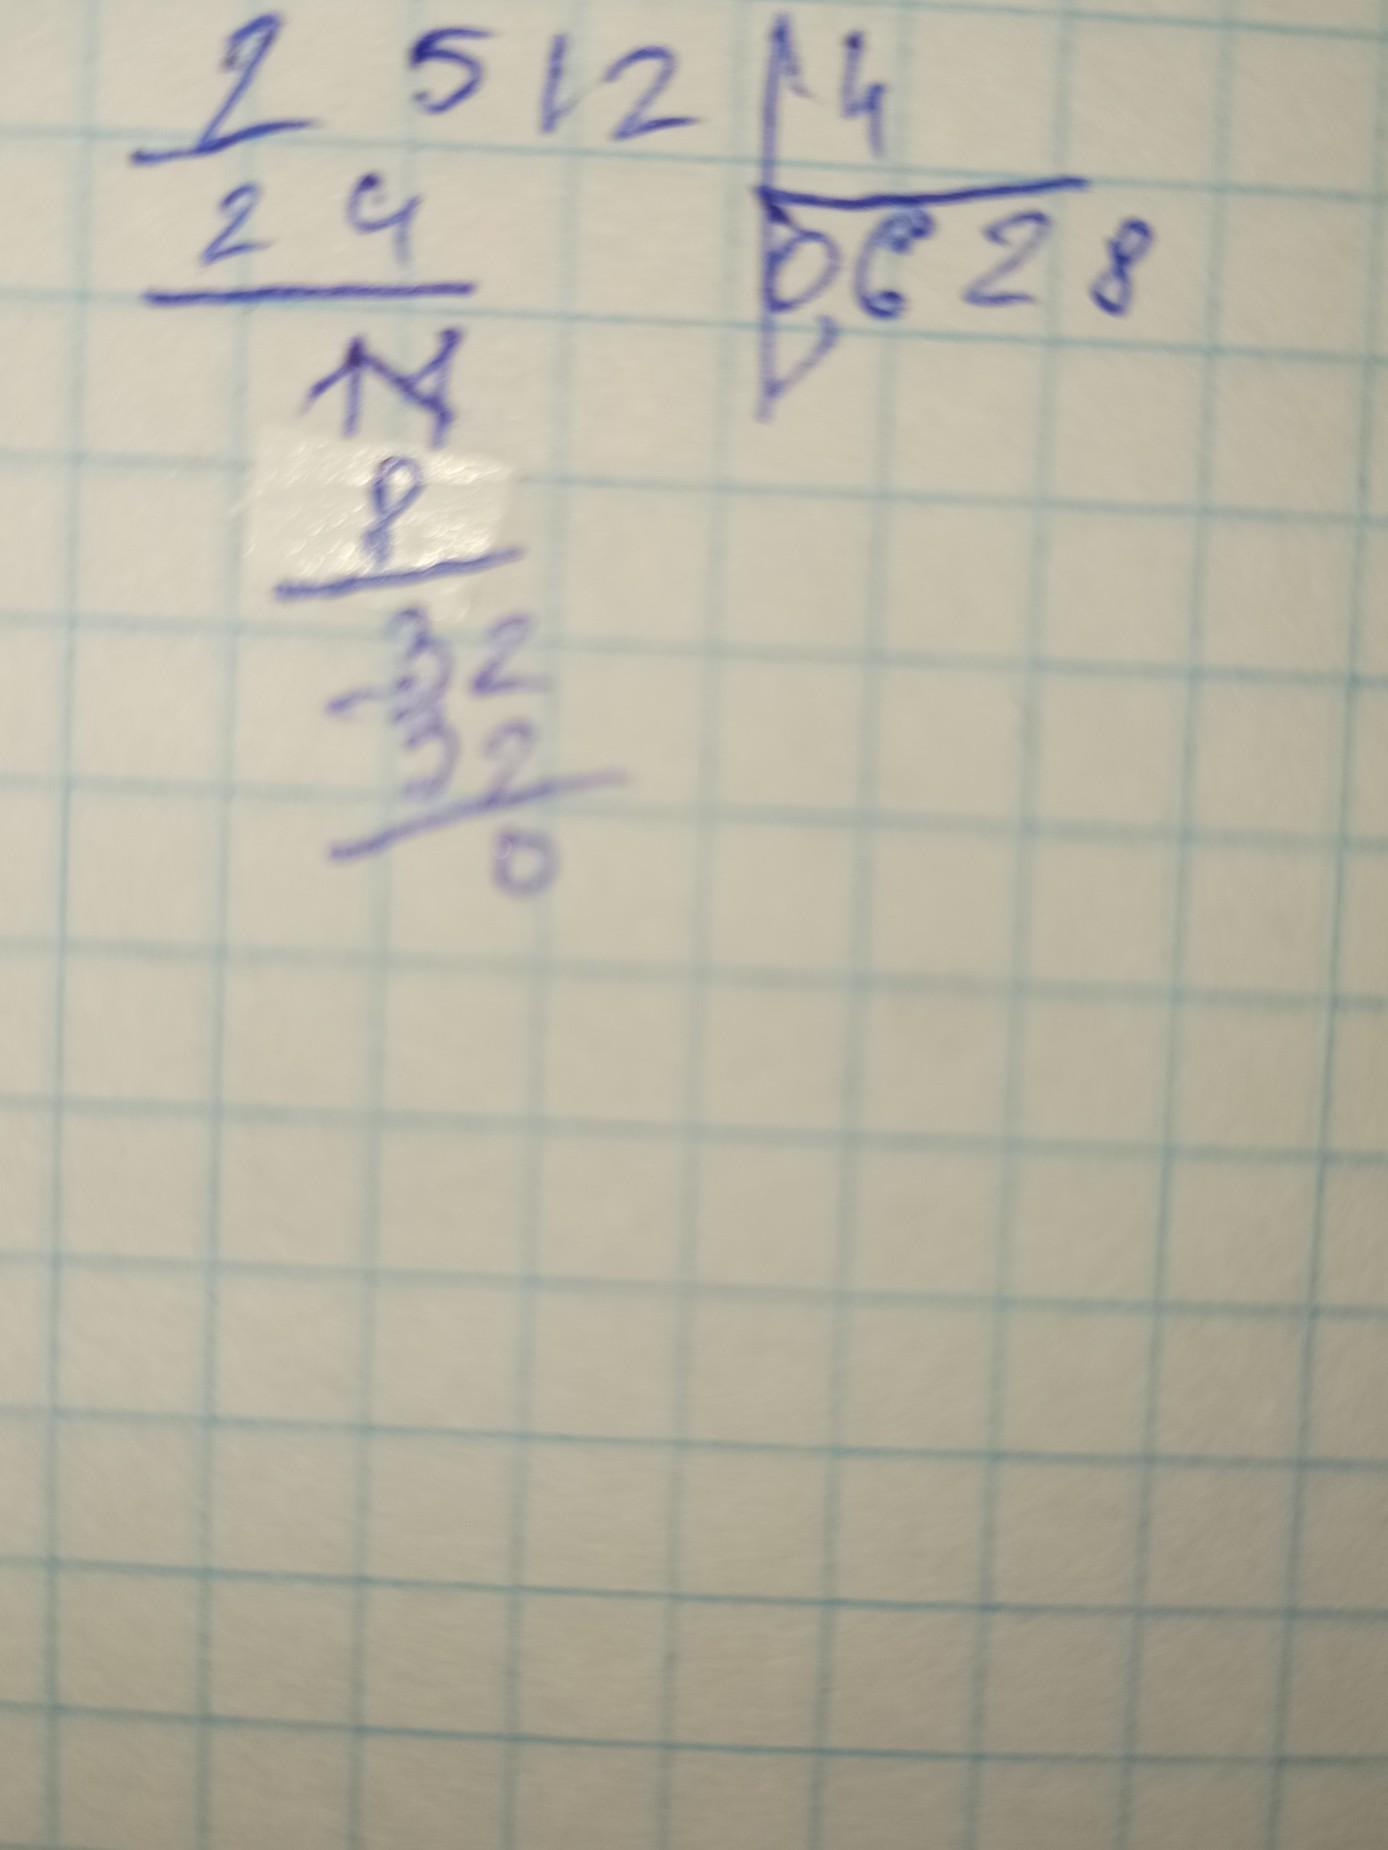 2512 4
24 0628
11
8
-32
32
0